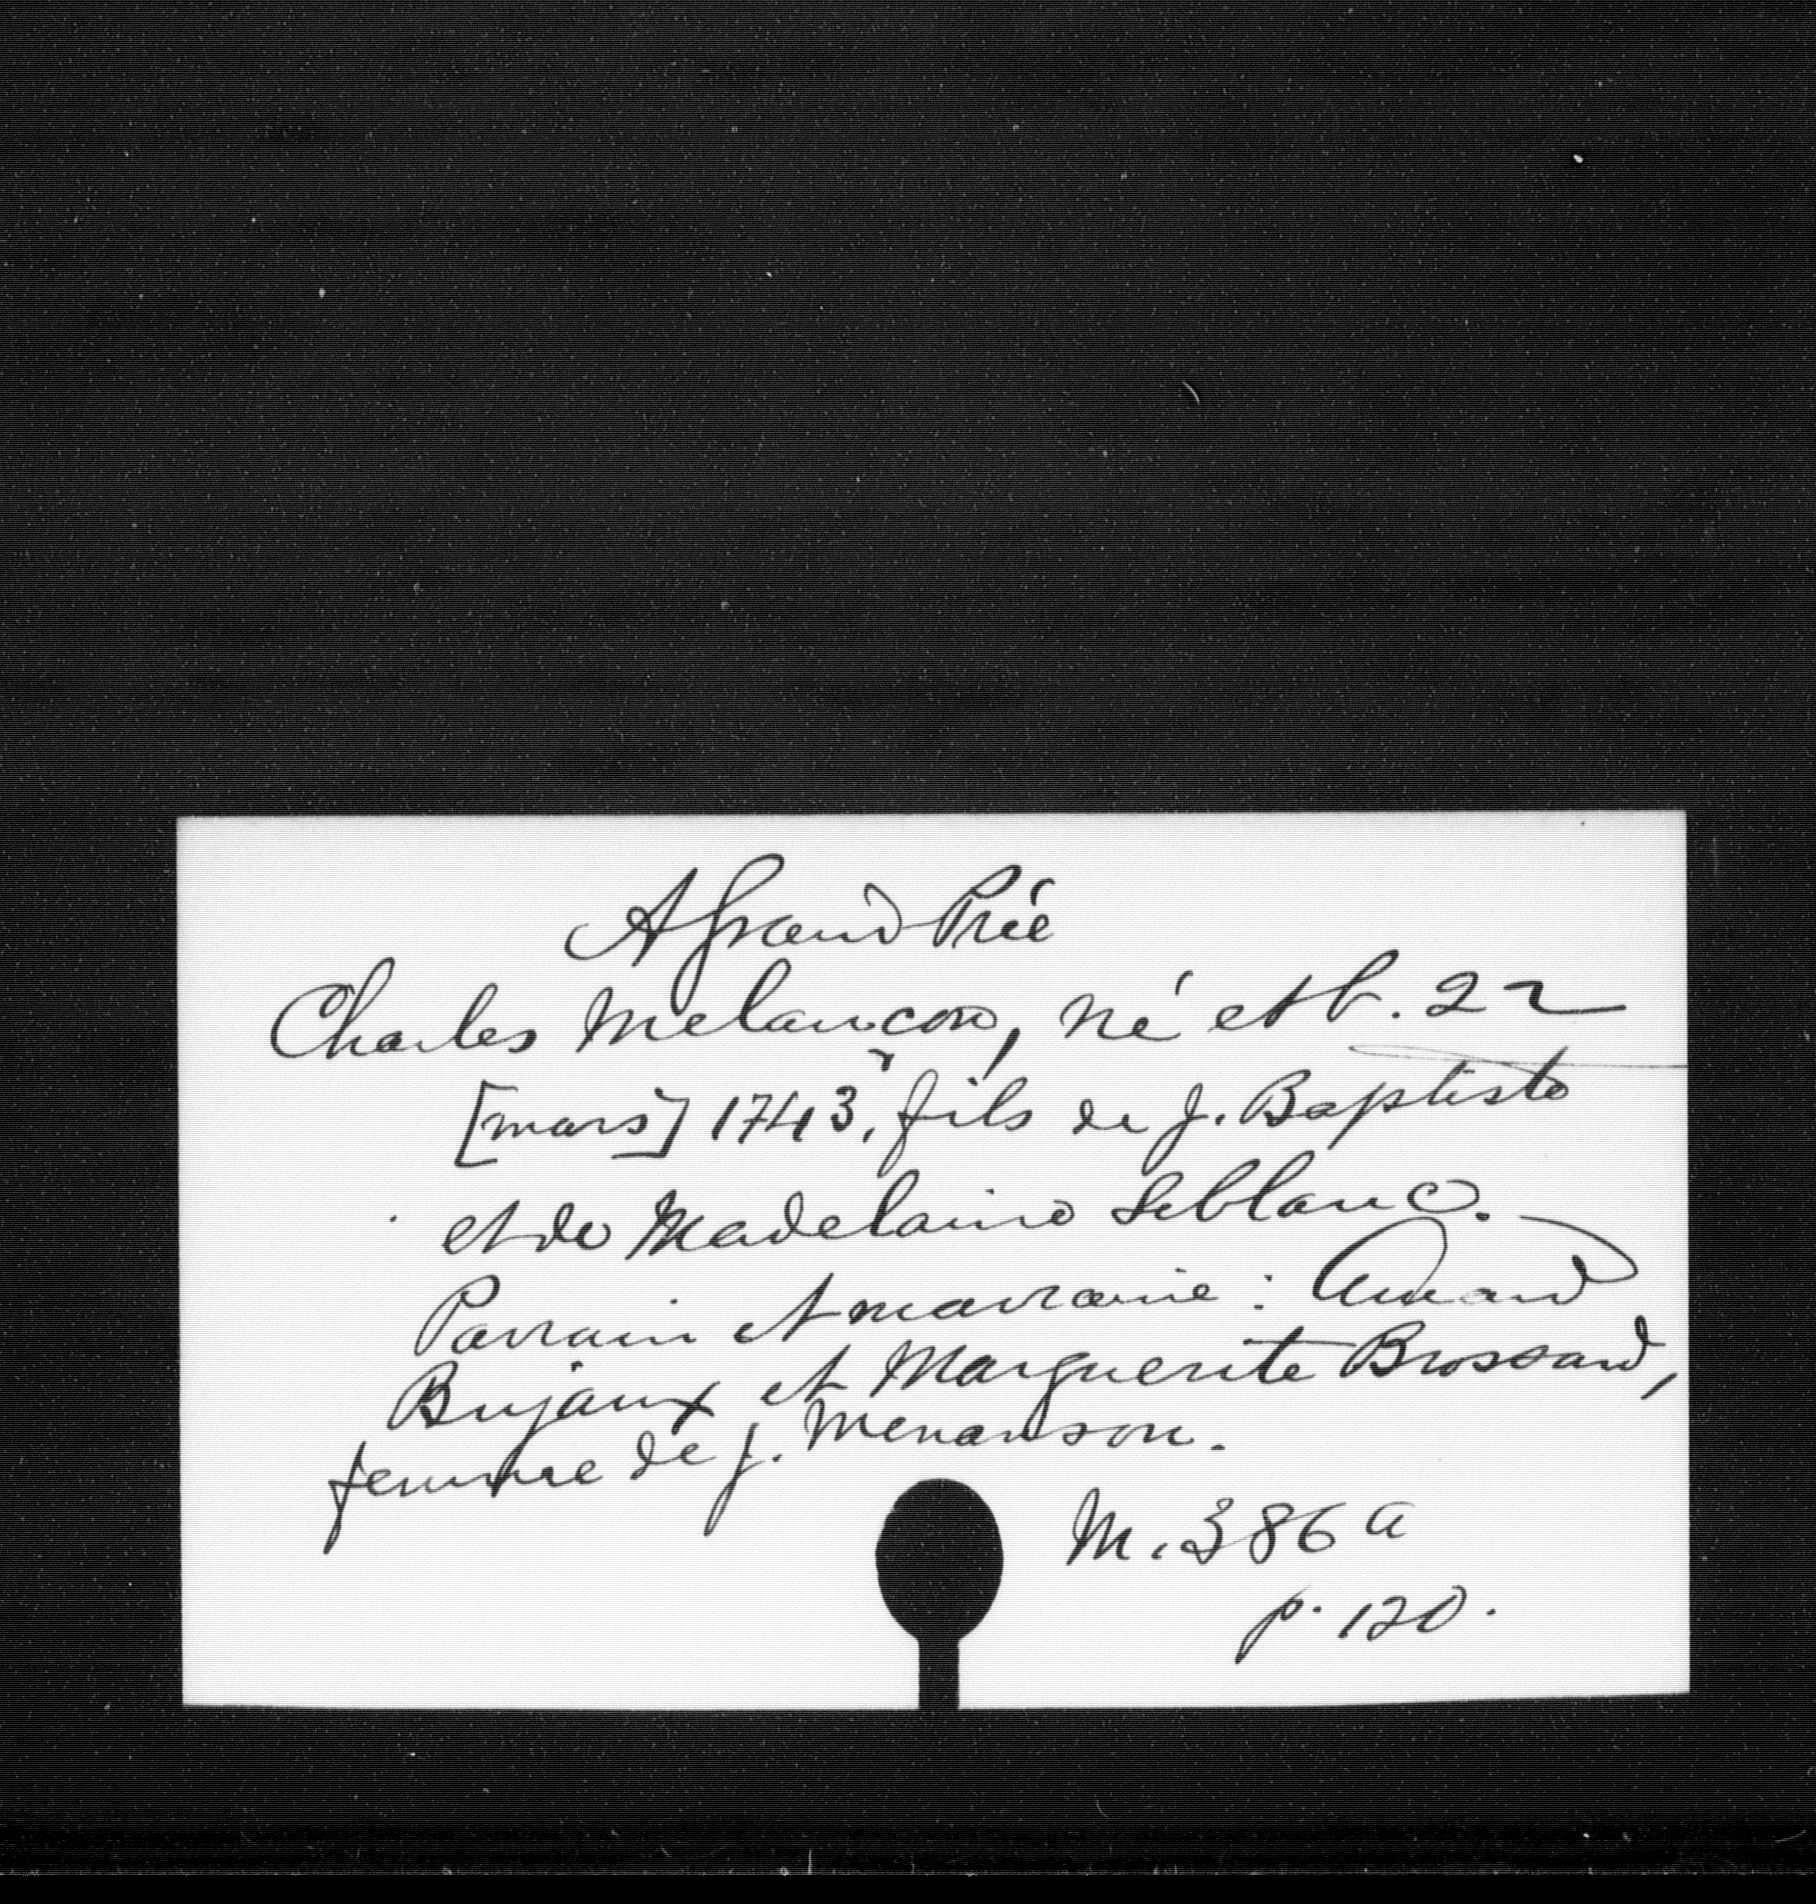 A Grand Prée
Charles Melancon, né et b. 22
[mars] 1743, fils de J. Baptiste
et de Madelaine Leblanc.
Parrain et marraine : Amand
Bujaux et Marguerite Brossard,
femme de J. Menanson.
M. 386 a
p. 120.